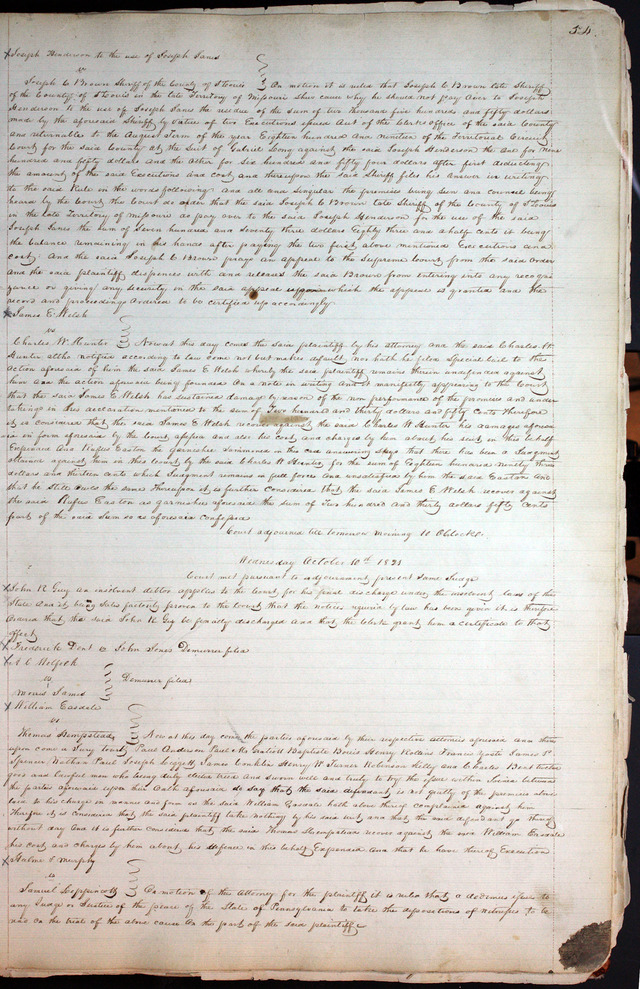 54.
Joseph Henderson to the use of Joseph Janes
vs
Joseph C Brown Sheriff of the County of St Louis } On motion it is ruled that Joseph C Brown late Sheriff
of the County of St Louis in the late Territory of Missouri shew cause why he should not pay over to Joseph
Henderson to the use of Joseph Janes the residue of the sum of two thousand five hundred and fifty dollars
made by the aforesaid Sheriff by virtue of two Executions issued out of the Clerks office of the said County
and returnable to the August Term of the year Eighteen hundred and nineteen of the Territorial Circuit
Court for the said County at the suit of Gabriel Long against the said Joseph Henderson the one for nine
hundred and fifty dollars and the other for six hundred and fifty four dollars after first deducting
the amount of the said Executions and cost and thereupon the said Sheriff files his answer in writing
to the said Rule in the words following and all and singular the premises being seen and Council being
heard by the Court the Court do order that the said Joseph C Brown late Sheriff of the County of St Louis
in the late Territory of Missouri do pay over to the said Joseph Henderson for the use of the said
Joseph Janes the sum of Seven hundred and Seventy three dollars Eighty three and a half cents it being
the balance remaining in his hands after paying the two first above mentioned Executions and
cost; and the said Joseph C Brown prays an appeal to the Supreme Court from the said order
and the said plaintiff dispenses with and releases the said Brown from entering into any recogni
zance or giving any security in the said appeal upon which the appeal is granted and the
record and proceedings ordered to be certified up accordingly
James E Welsh
vs
Charles W. Hunter } Now at this day comes the said plaintiff by his attorney and the said Charles W.
Hunter altho notified according to law come not but makes default, nor hath he filed special bail to the
action aforesaid of him the said James E Welsh whereby the said plaintiff remains therein undefended against
him and the action aforesaid being founded on a note in writing and it manifestly appearing to the Court
that the said James E Welsh has sustained damage by reason of the non performance of the promises and under
takings in the declaration mentioned to the sum of Two hundred and thirty dollars and fifty Cents therefore
it is considered that the said James E Welsh recover against the said Charles W Hunter his damages aforesa
id in form aforesaid by the Court and also his cost and charges by him about his suit in this behalf
Expended And Rufus Easton the garnishee summoned in this case answering says that there has been a Judgment
obtained against him in this Court by the said Charles W Hunter for the sum of Eighteen hundred ninety three
dollars and thirteen cents which Judgment remains in full force and unsatisfied by him the said Easton and
that he still owes the same Thereupon it is further considered that the said James E Welsh recover against
the said Rufus Easton as garnishee aforesaid the sum of Two hundred and thirty dollars fifty Cents
part of the said sum so as aforesaid confessed
Court adjourned till tomorrow morning 10 OClock.
Wednesday October 10th 1821
Court met pursuant to adjournment present same Judge
John R Guy an insolvent debtor applies to the Court for his final discharge under the insolvent laws of this
State and it being satisfactorily proven to the Court that the notice required by law has been given it is therefore
ordered that the said John R Guy be finally discharged and that the clerk grant him a certificate to that
effect
Frederick Dent vs John Jones Demurrer filed
vs
Morris James } Demurrer filed
William Easdale
vs
Thomas Hempstead } Now at this day come the parties aforesaid by their respective attornies aforesaid and there
upon come a Jury to wit Paul Anderson Paul M Gratiott Baptiste Henry Rollins Francis Yosti James P
Spencer Nathan Paul Joseph James Conklin Henry W Turner Robinson Kelly and Charles twelve
good and lawful men who being duly elected tried and sworn well and truly to try the issue within Joined between
the parties aforesaid upon their Oath aforesaid do say that the said defendant is not guilty of the premises above
laid to his charge in manner and form as the said William Easdale hath above thereof complained against him
Therefore it is considered that the said plaintiff take nothing by his said suit and that the said defendant go thereof
without day and it is further considered that the said Thomas Hempstead recover against the said William Easdale
his cost and charges by him about his defence in this behalf Expended and that he have thereof Execution
Murphy
vs
Samuel Lippincott } On motion of the Attorney for the plaintiff it is ruled that a dedimus issue to
any Judge or Justice of the peace of the State of Pennsylvania to take the depositions of witnesses to be
read on the trial of the above cause on the part of the said plaintiff